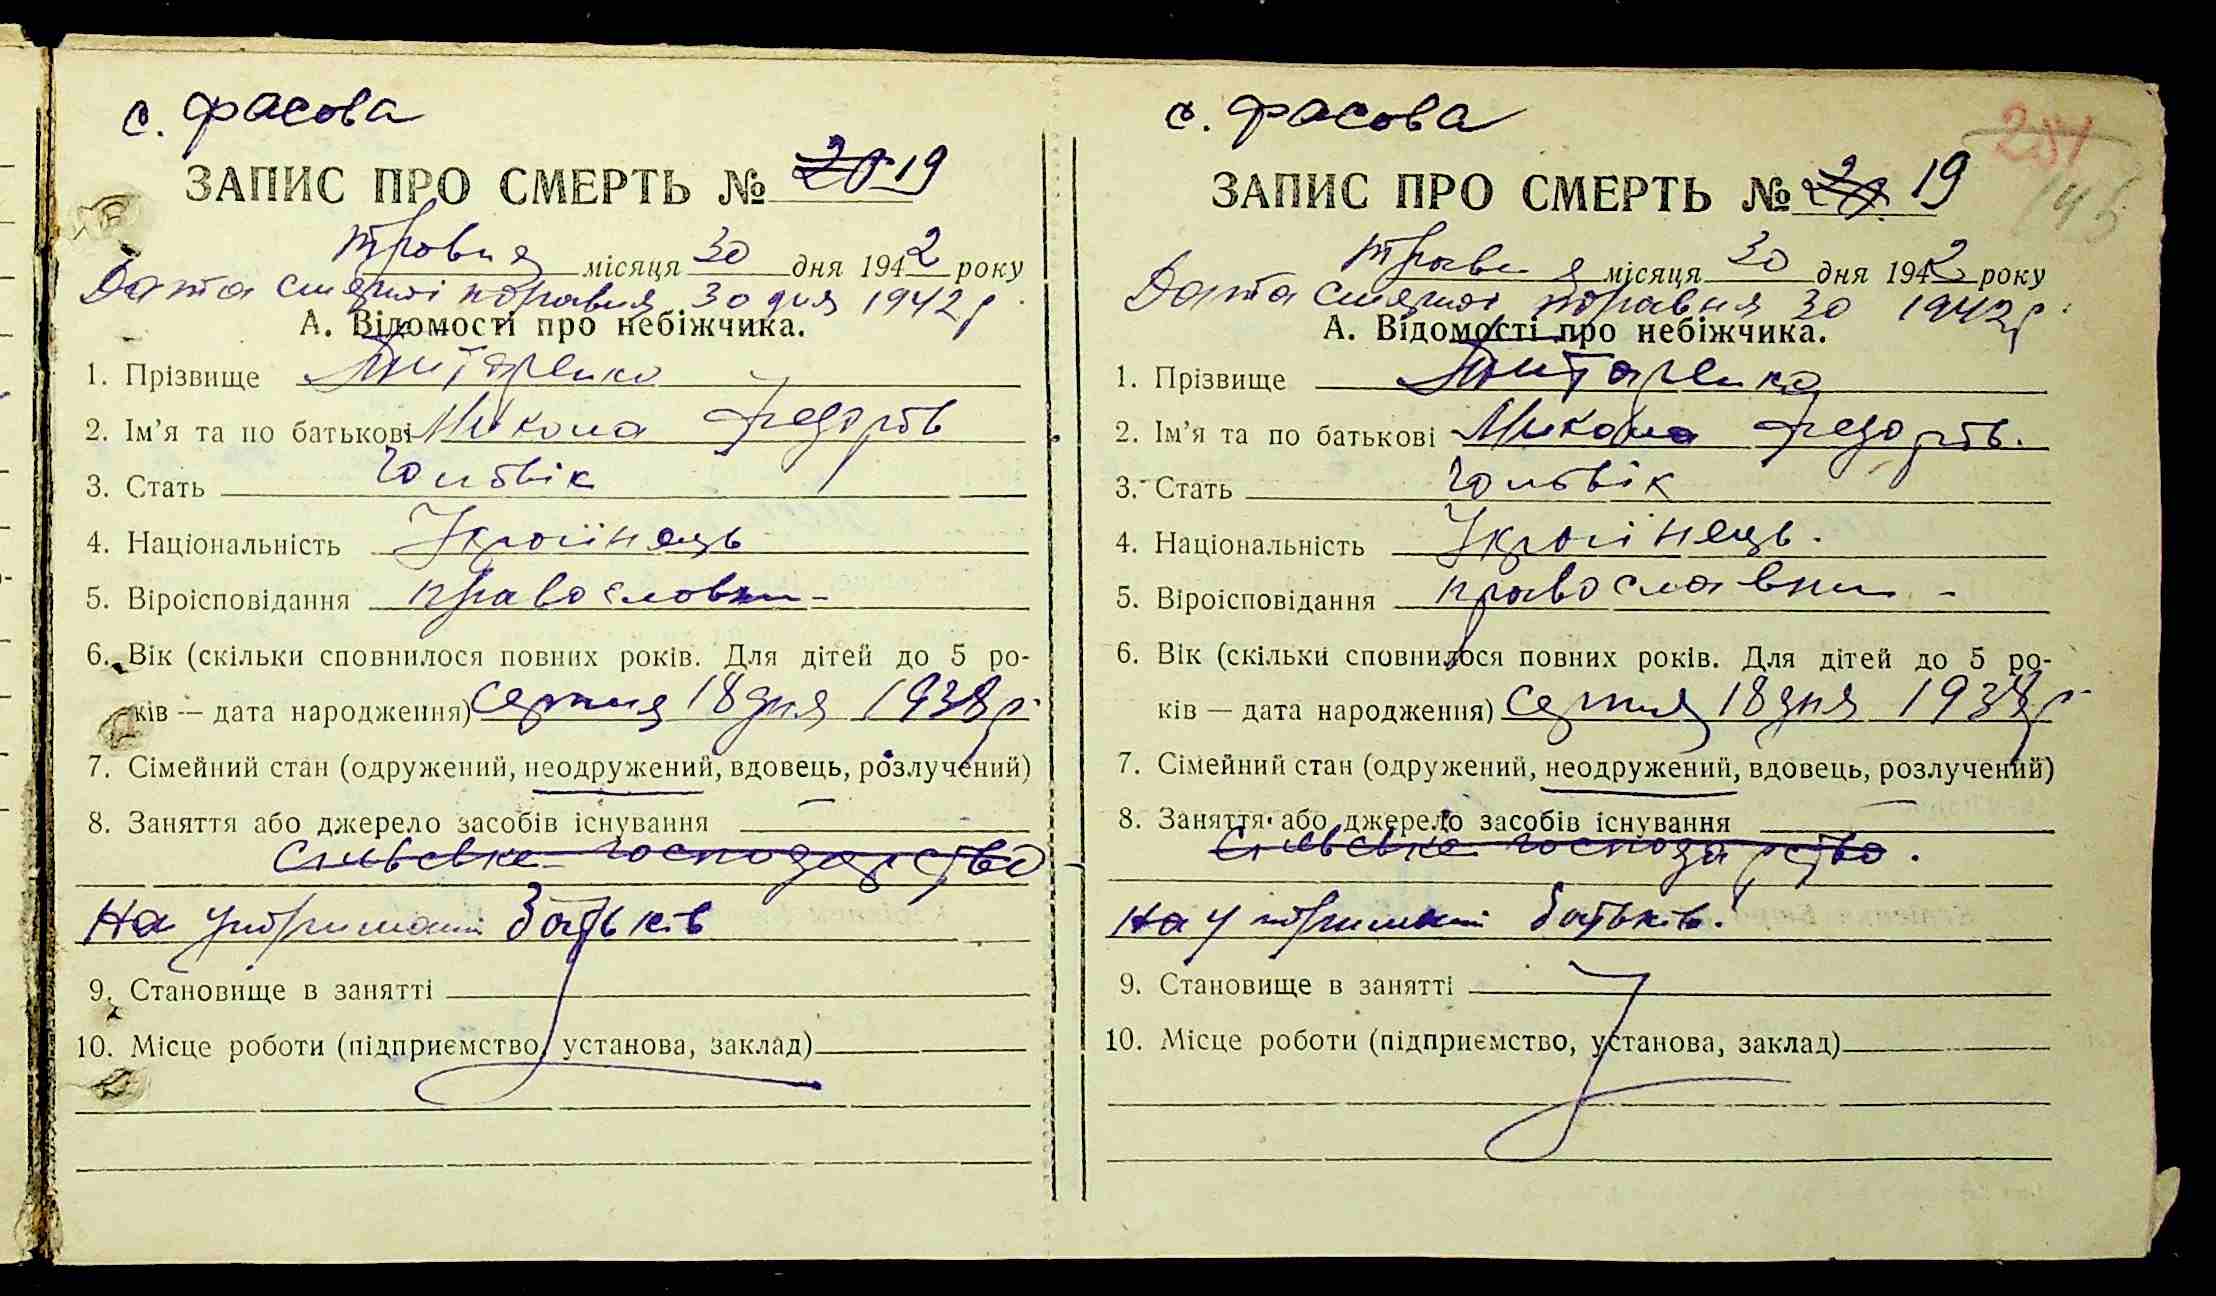 с. Фасова
ЗАПИС ПРО СМЕРТЬ № 20 19
травня місяця 30 дня 1942 року
Дата смерті травня 30 дня 1942 р.
А. Відомості про небіжчика.
1. Прізвище Титаренко
2. Ім'я та по батькові Микола Федорів
3. Стать Чоловік
4. Національність Українець
5. Віроісповідання православни
6. Вік (скільки сповнилося повних років. Для дітей до 5 ро-
ків — дата народження) серпня 18 дня 1938 р.
7. Сімейний стан (одружений, неодружений, вдовець, розлучений)
8. Заняття або джерело засобів існування
сільське господарство
на утриманні батьків
9. Становище в занятті
10. Місце роботи (підприємство, установа, заклад)
с. Фасова
251
145
ЗАПИС ПРО СМЕРТЬ № 20 19
травня місяця 30 дня 1942 року
Дата смерті травня 30 1942 р.
А. Відомості про небіжчика.
1. Прізвище Титаренко
2. Ім'я та по батькові Микола Федорів.
3. Стать Чоловік
4. Національність Українець.
5. Віроісповідання православни
6. Вік (скільки сповнилося повних років. Для дітей до 5 ро-
ків — дата народження) серпня 18 дня 1938 р.
7. Сімейний стан (одружений, неодружений, вдовець, розлучений)
8. Заняття або джерело засобів існування
сільське господарство.
на утриманні батьків.
9. Становище в занятті
10. Місце роботи (підприємство, установа, заклад)